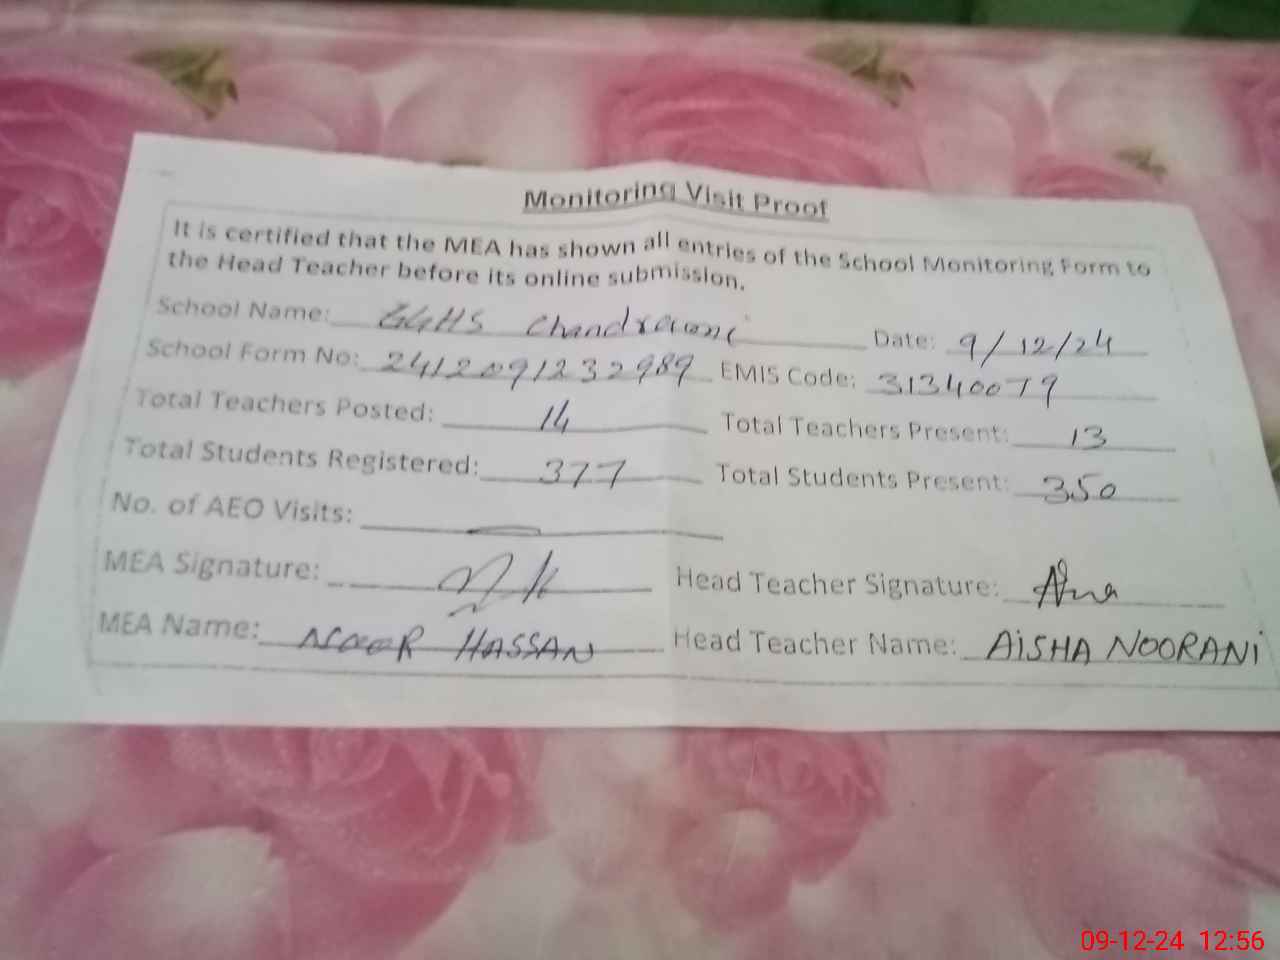 Monitoring Visit Proof
It is certified that the MEA has shown all entries of the School Monitoring Form to
the Head Teacher before its online submission.
School Name: GGHS Chandrami Date: 9/12/24
School Form No: 2412091232989 EMIS Code: 31340079
Total Teachers Posted: 14 Total Teachers Present: 13
Total Students Registered: 377 Total Students Present: 350
No. of AEO Visits:
MEA Signature: Head Teacher Signature:
MEA Name: NOOR HASSAN Head Teacher Name: AiSHA NOORANi
09-12-24 12:56